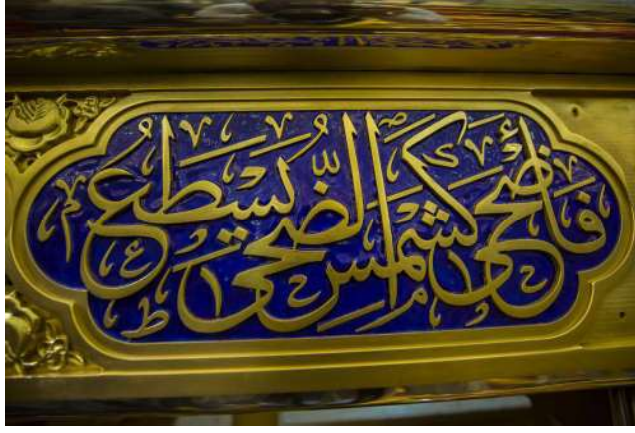 فَأَضْحَىٰ كَشَمْسِ الضُّحَىٰ يَسْطَعُ